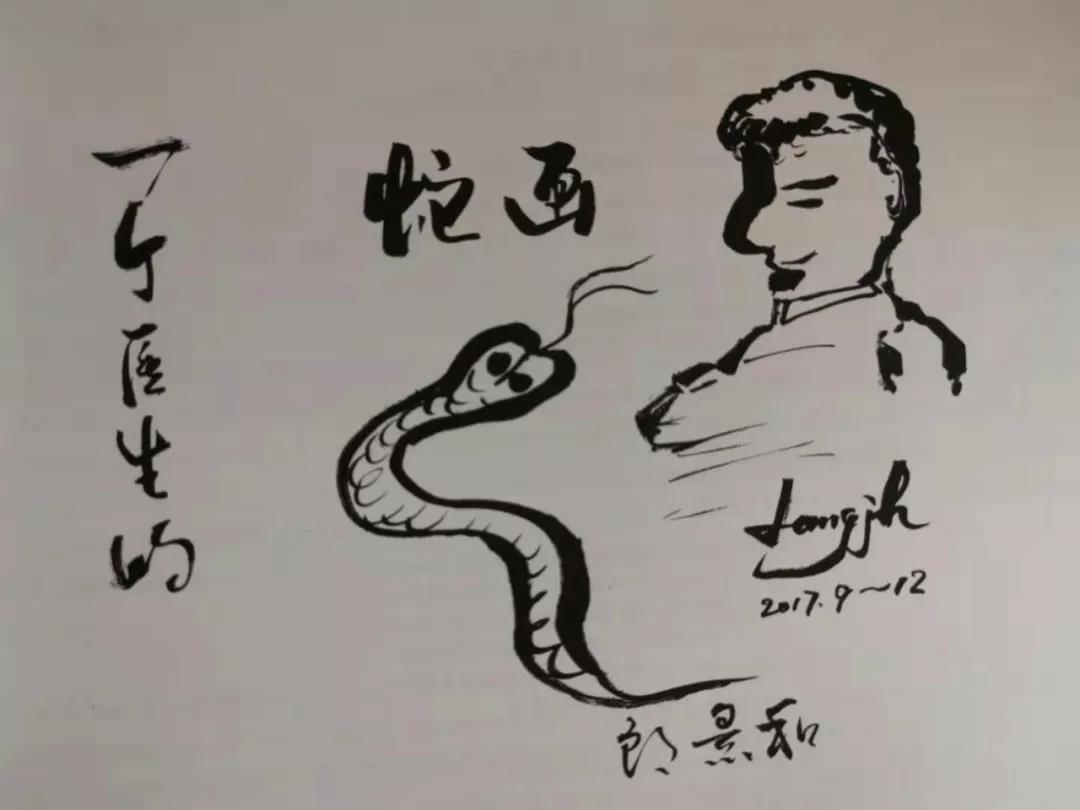 一个医生的
蛇画
Langjh
2017.9~12
郎景和